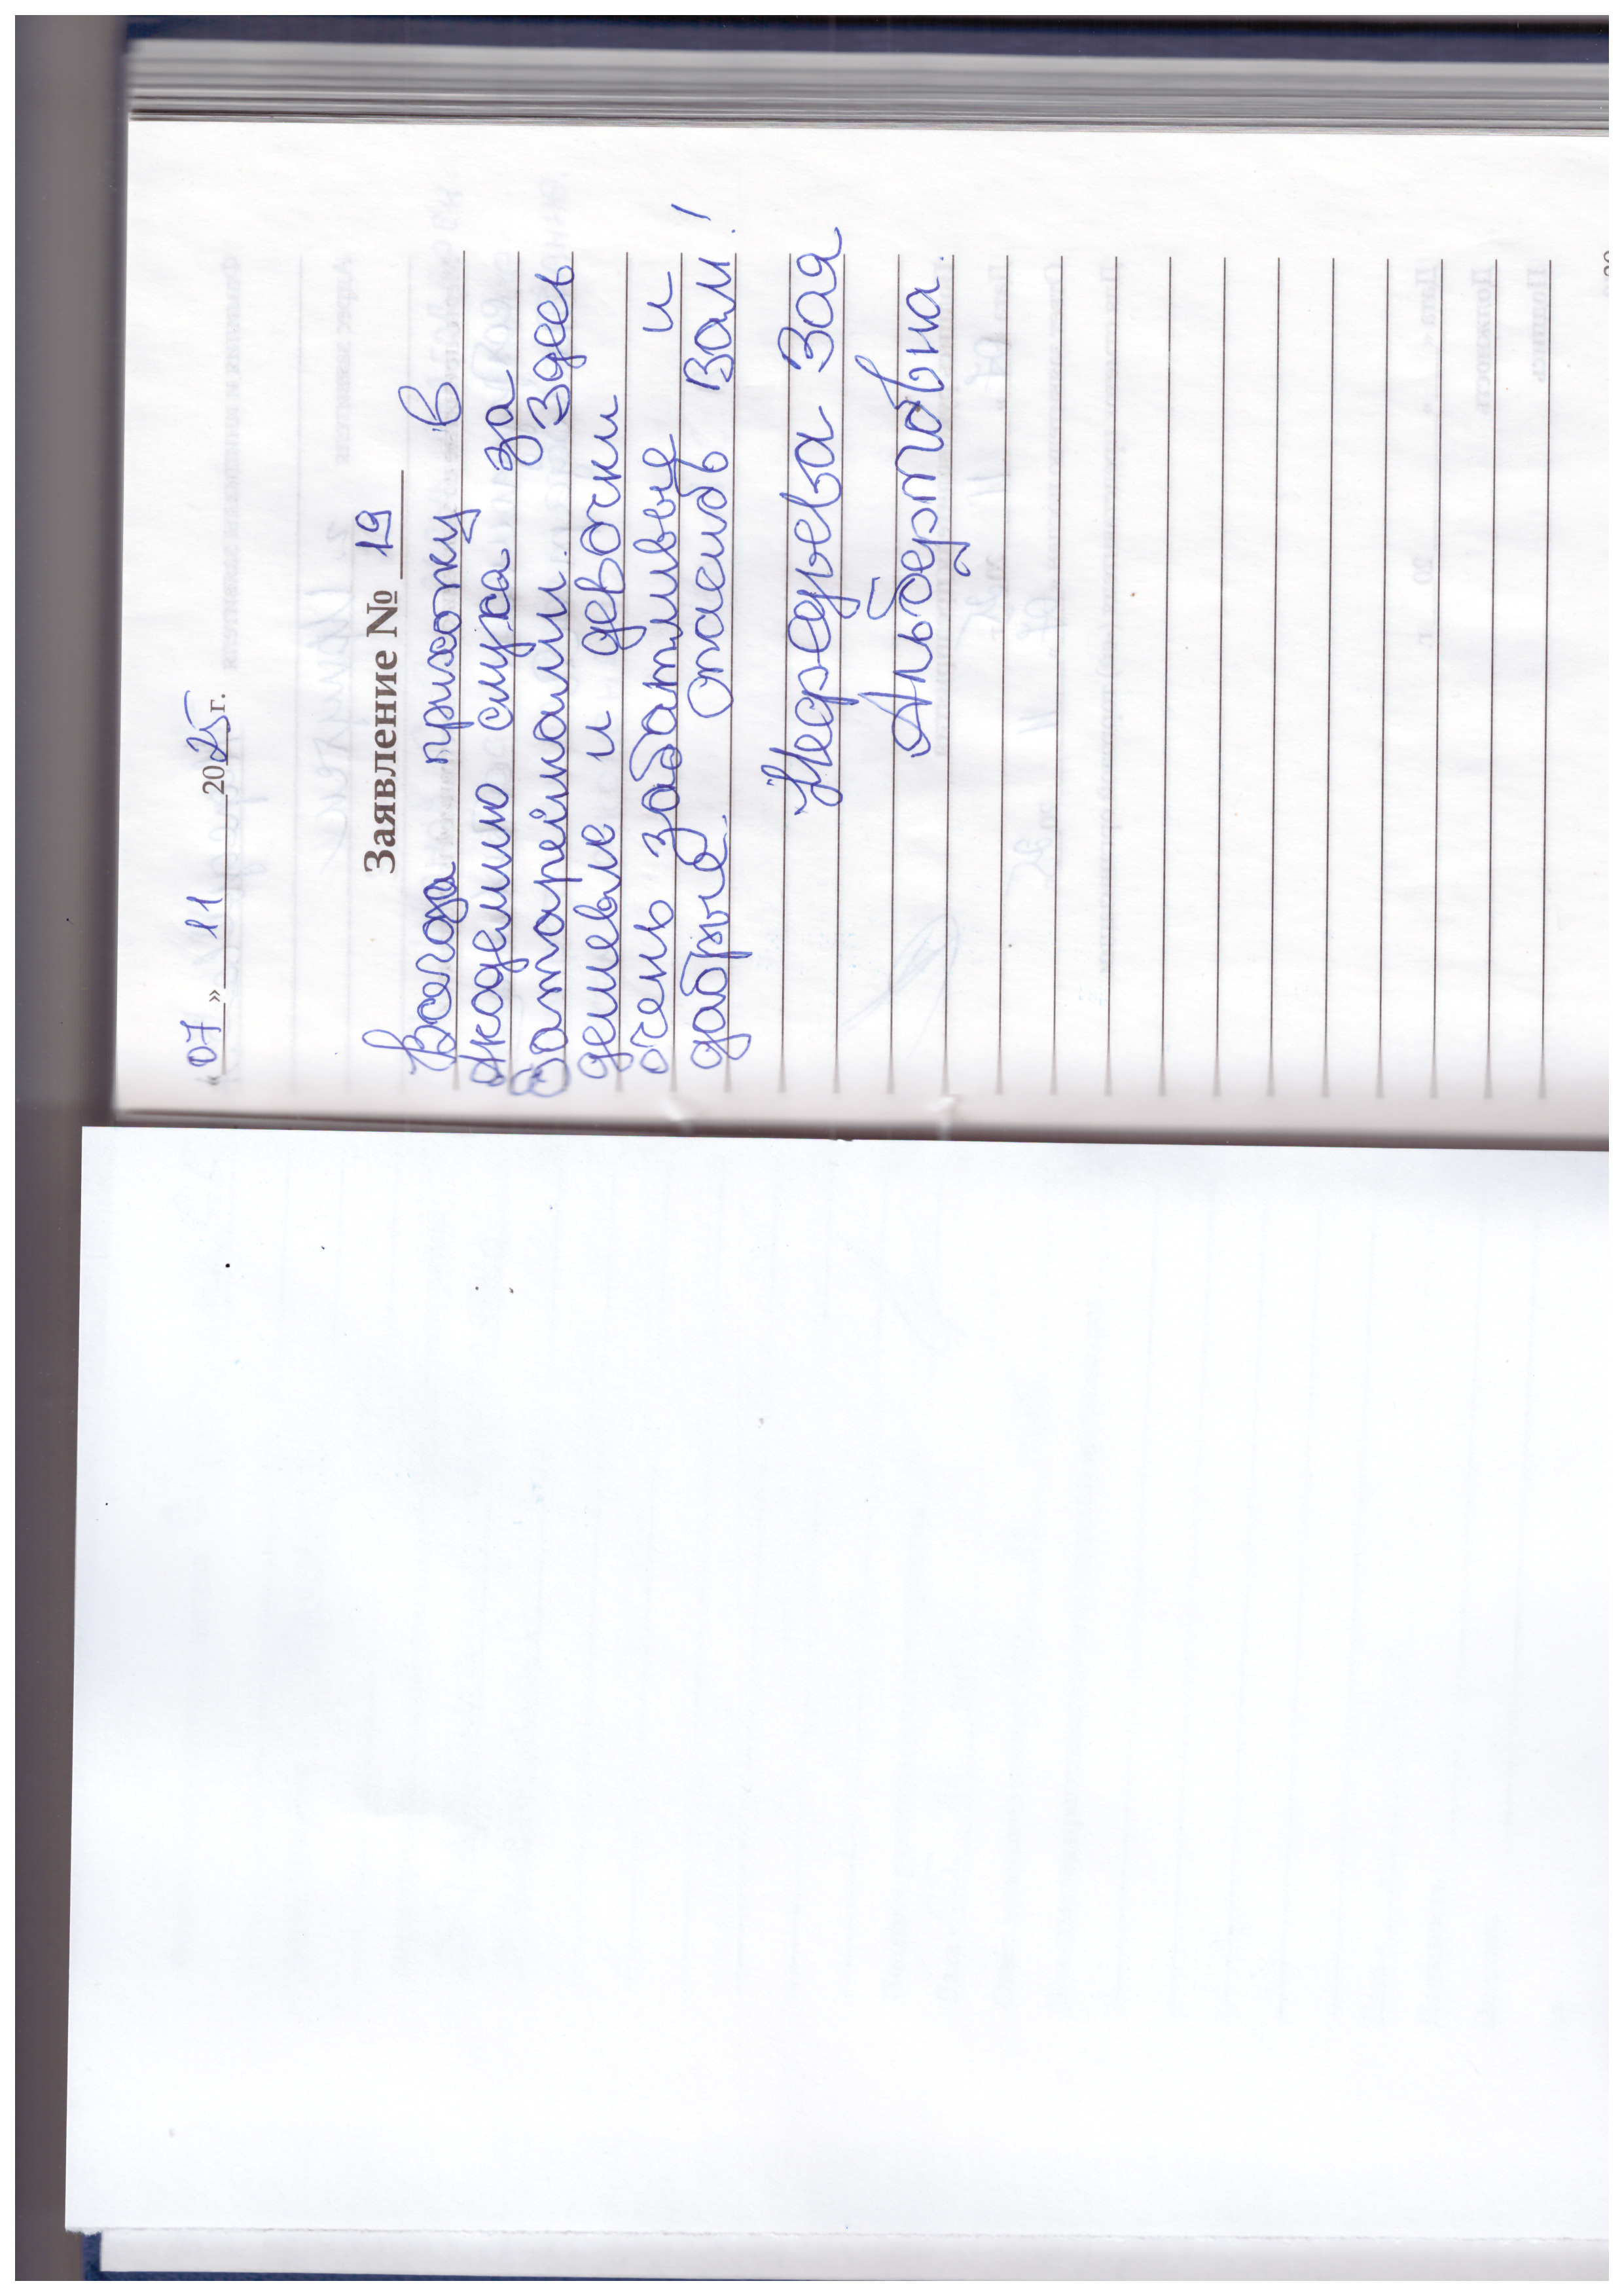 « 07 » 11 2025 г.
Заявление № 19
Всегда прихожу в
Академию слуха за
батарейками. Здесь
дешевле и девочки
очень заботливые и
добрые. Спасибо Вам!
Зоя
Альбертовна.